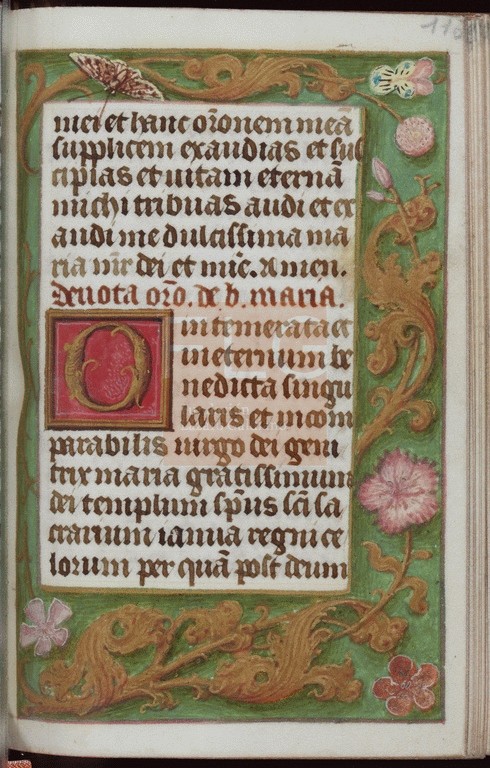 115
mei et hanc or̃onem meã
supplicem exaudias et sus
cipias et uitam eternã
michi tribuas audi et ex
audi me dulcissima ma
ria mr̃ dei et mĩe. Amen.
Deuota or̃o. de b. maria.
O intemerata et
in eternum be
nedicta singu
laris et incom
parabilis uirgo dei geni
trix maria gratissimum
dei templum sp̃us sc̃i sa
crarium ianua regni ce
lorum per quã post deum